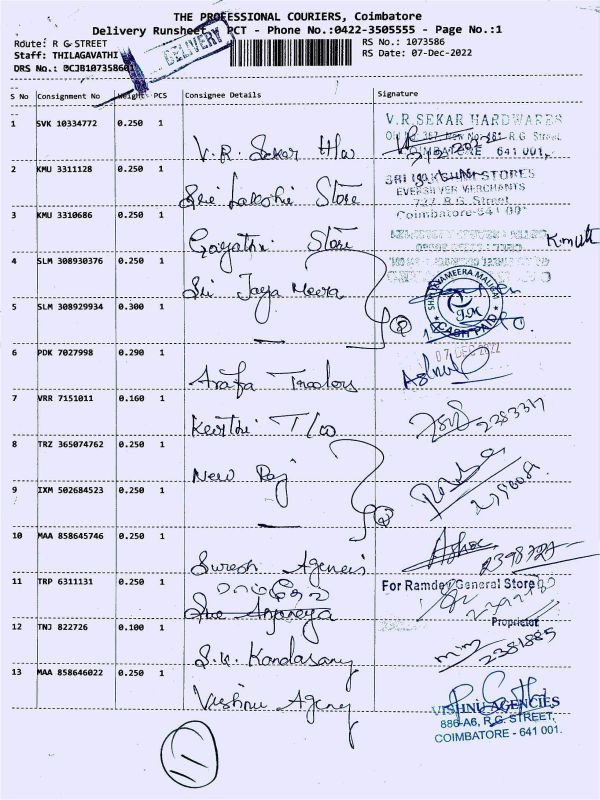 THE PROFESSIONAL COURIERS, Coimbatore
Delivery Runsheet PCT - Phone No.:0422-3505555 - Page No.:1
Route: R G STREET
RS No.: 1073586
Staff: THILAGAVATHI
RS Date: 07-Dec-2022
DRS No.: DCJB107358601
DELIVERY
S No Consignment No Weight PCS Consignee Details Signature
1 SVK 10334772 0.250 1 V.R. Sekar Hw
V.R.SEKAR HARDWARES
R.G. Street,
COIMBATORE 641 001.
2 KMU 3311128 0.250 1 Sri Lakshmi Store
SRI LAKSHMI STORES
EVERSILVER MERCHANTS
727, R.G. Street,
Coimbatore-641 001
3 KMU 3310686 0.250 1 Gayathri Store
4 SLM 308930376 0.250 1 Sri Jaya Meera
CASH PAID
5 SLM 308929934 0.300 1 — 2
07 DEC 2022
6 PDK 7027998 0.290 1 Arafa Traders
7 VRR 7151011 0.160 1 Keerthi T/co
2283317
8 TRZ 365074762 0.250 1 New Raj
9 IXM 502684523 0.250 1 — 2
10 MAA 858645746 0.250 1 Suresh Agencies
11 TRP 6311131 0.250 1
For Ramdev General Store
Proprietor
12 TNJ 822726 0.100 1 S.K. Kandasamy
2381885
13 MAA 858646022 0.250 1 Vishnu Agency
VISHNU AGENCIES
886-A6, R.G. STREET,
COIMBATORE - 641 001.
11